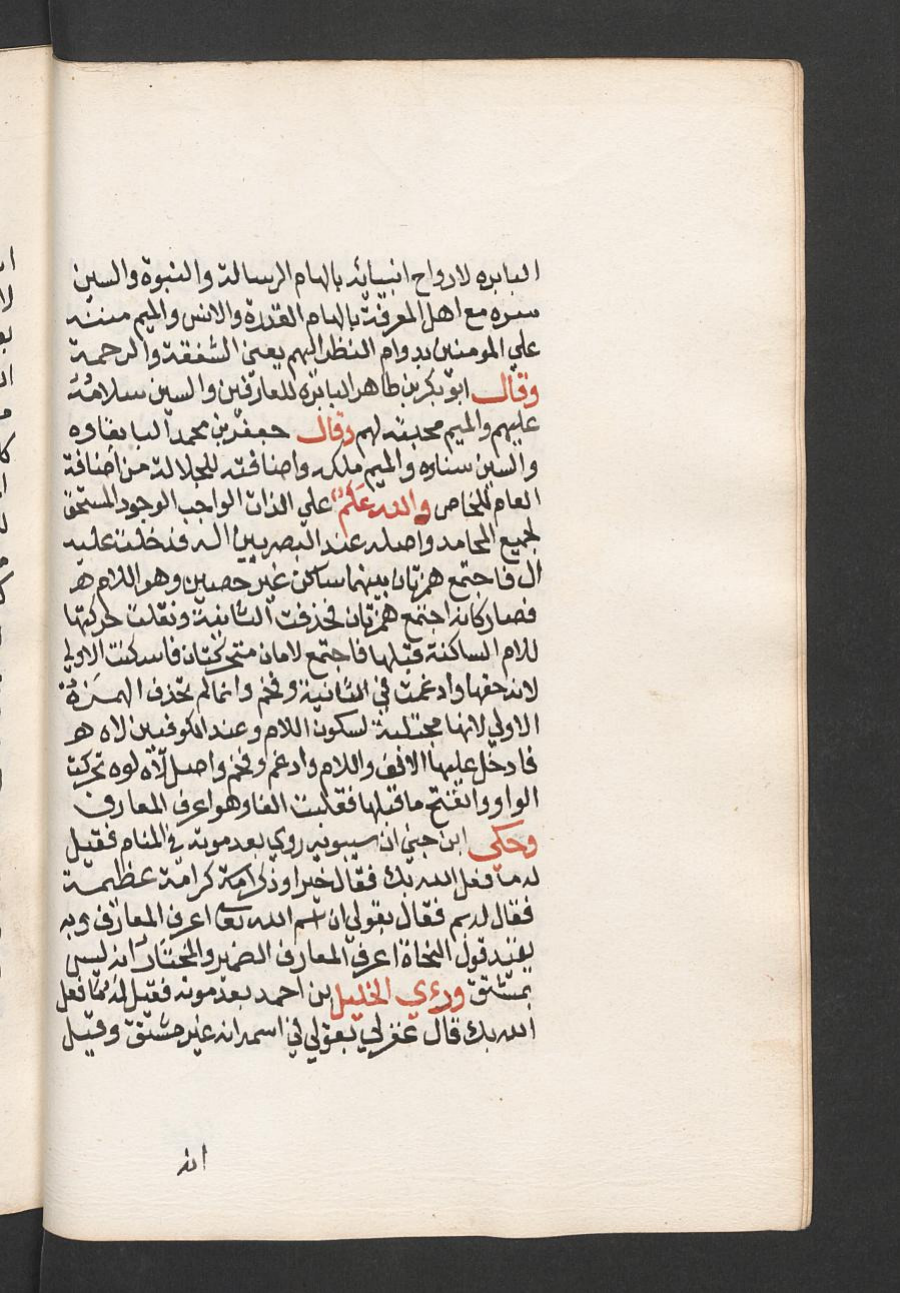 البا بره لارواح انبيائه بالهام الرسالة والنبوة والسين
سره مع اهل المعرفة بالهام القدرة والانس والميم مننه
علي المومنين بدوام النظر اليهم بعين الشفقة والرحمة
وقال ابو بكر بن طاهر البا بره للعارفين والسين سلامه
عليهم والميم محبته لهم وقال جعفر بن محمد البا بقاوه
والسين سناوه والميم ملكه واضافته للجلالة من اضافة
العام للخاص والله علم علي الذات الواجب الوجود المستحق
لجميع المحامد واصله عند البصريين اله فدخلت عليه
ال فاجتمع همزتان بينهما ساكن غير حصين وهو اللام هـ
فصار كانه اجتمع همزتان فحذفت الثانية ونقلت حركتها
للام الساكنة قبلها فاجتمع لامان متحركتان فاسكنت الاولي
لانه حقها وادغمت في الثانية وفخم وانما لم تحذف الهمزة
الاولي لانها مجتلبة لسكون اللام وعند الكوفيين لاه هـ
فادخل عليها الالف واللام وادغم وفخم واصل لاه لوه تحركت
الواو وانفتح ما قبلها فقلبت الفا وهو اعرف المعارف
وحكي ابن جني ان سيبويه روي بعد موته في المنام فقيل
له ما فعل الله بك فقال خيرا وذكر كرامة عظيمة
فقال له بم فقال بقولي ان اسم الله تعا اعرف المعارف وبه
يقيد قول النحاة اعرف المعارف الضمير والمختار انه ليس
بمشتق ورءي الخليل بن احمد بعد موته فقيل له ما فعل
الله بك قال غفر لي بقولي في اسمه انه غير مشتق وقيل
انه